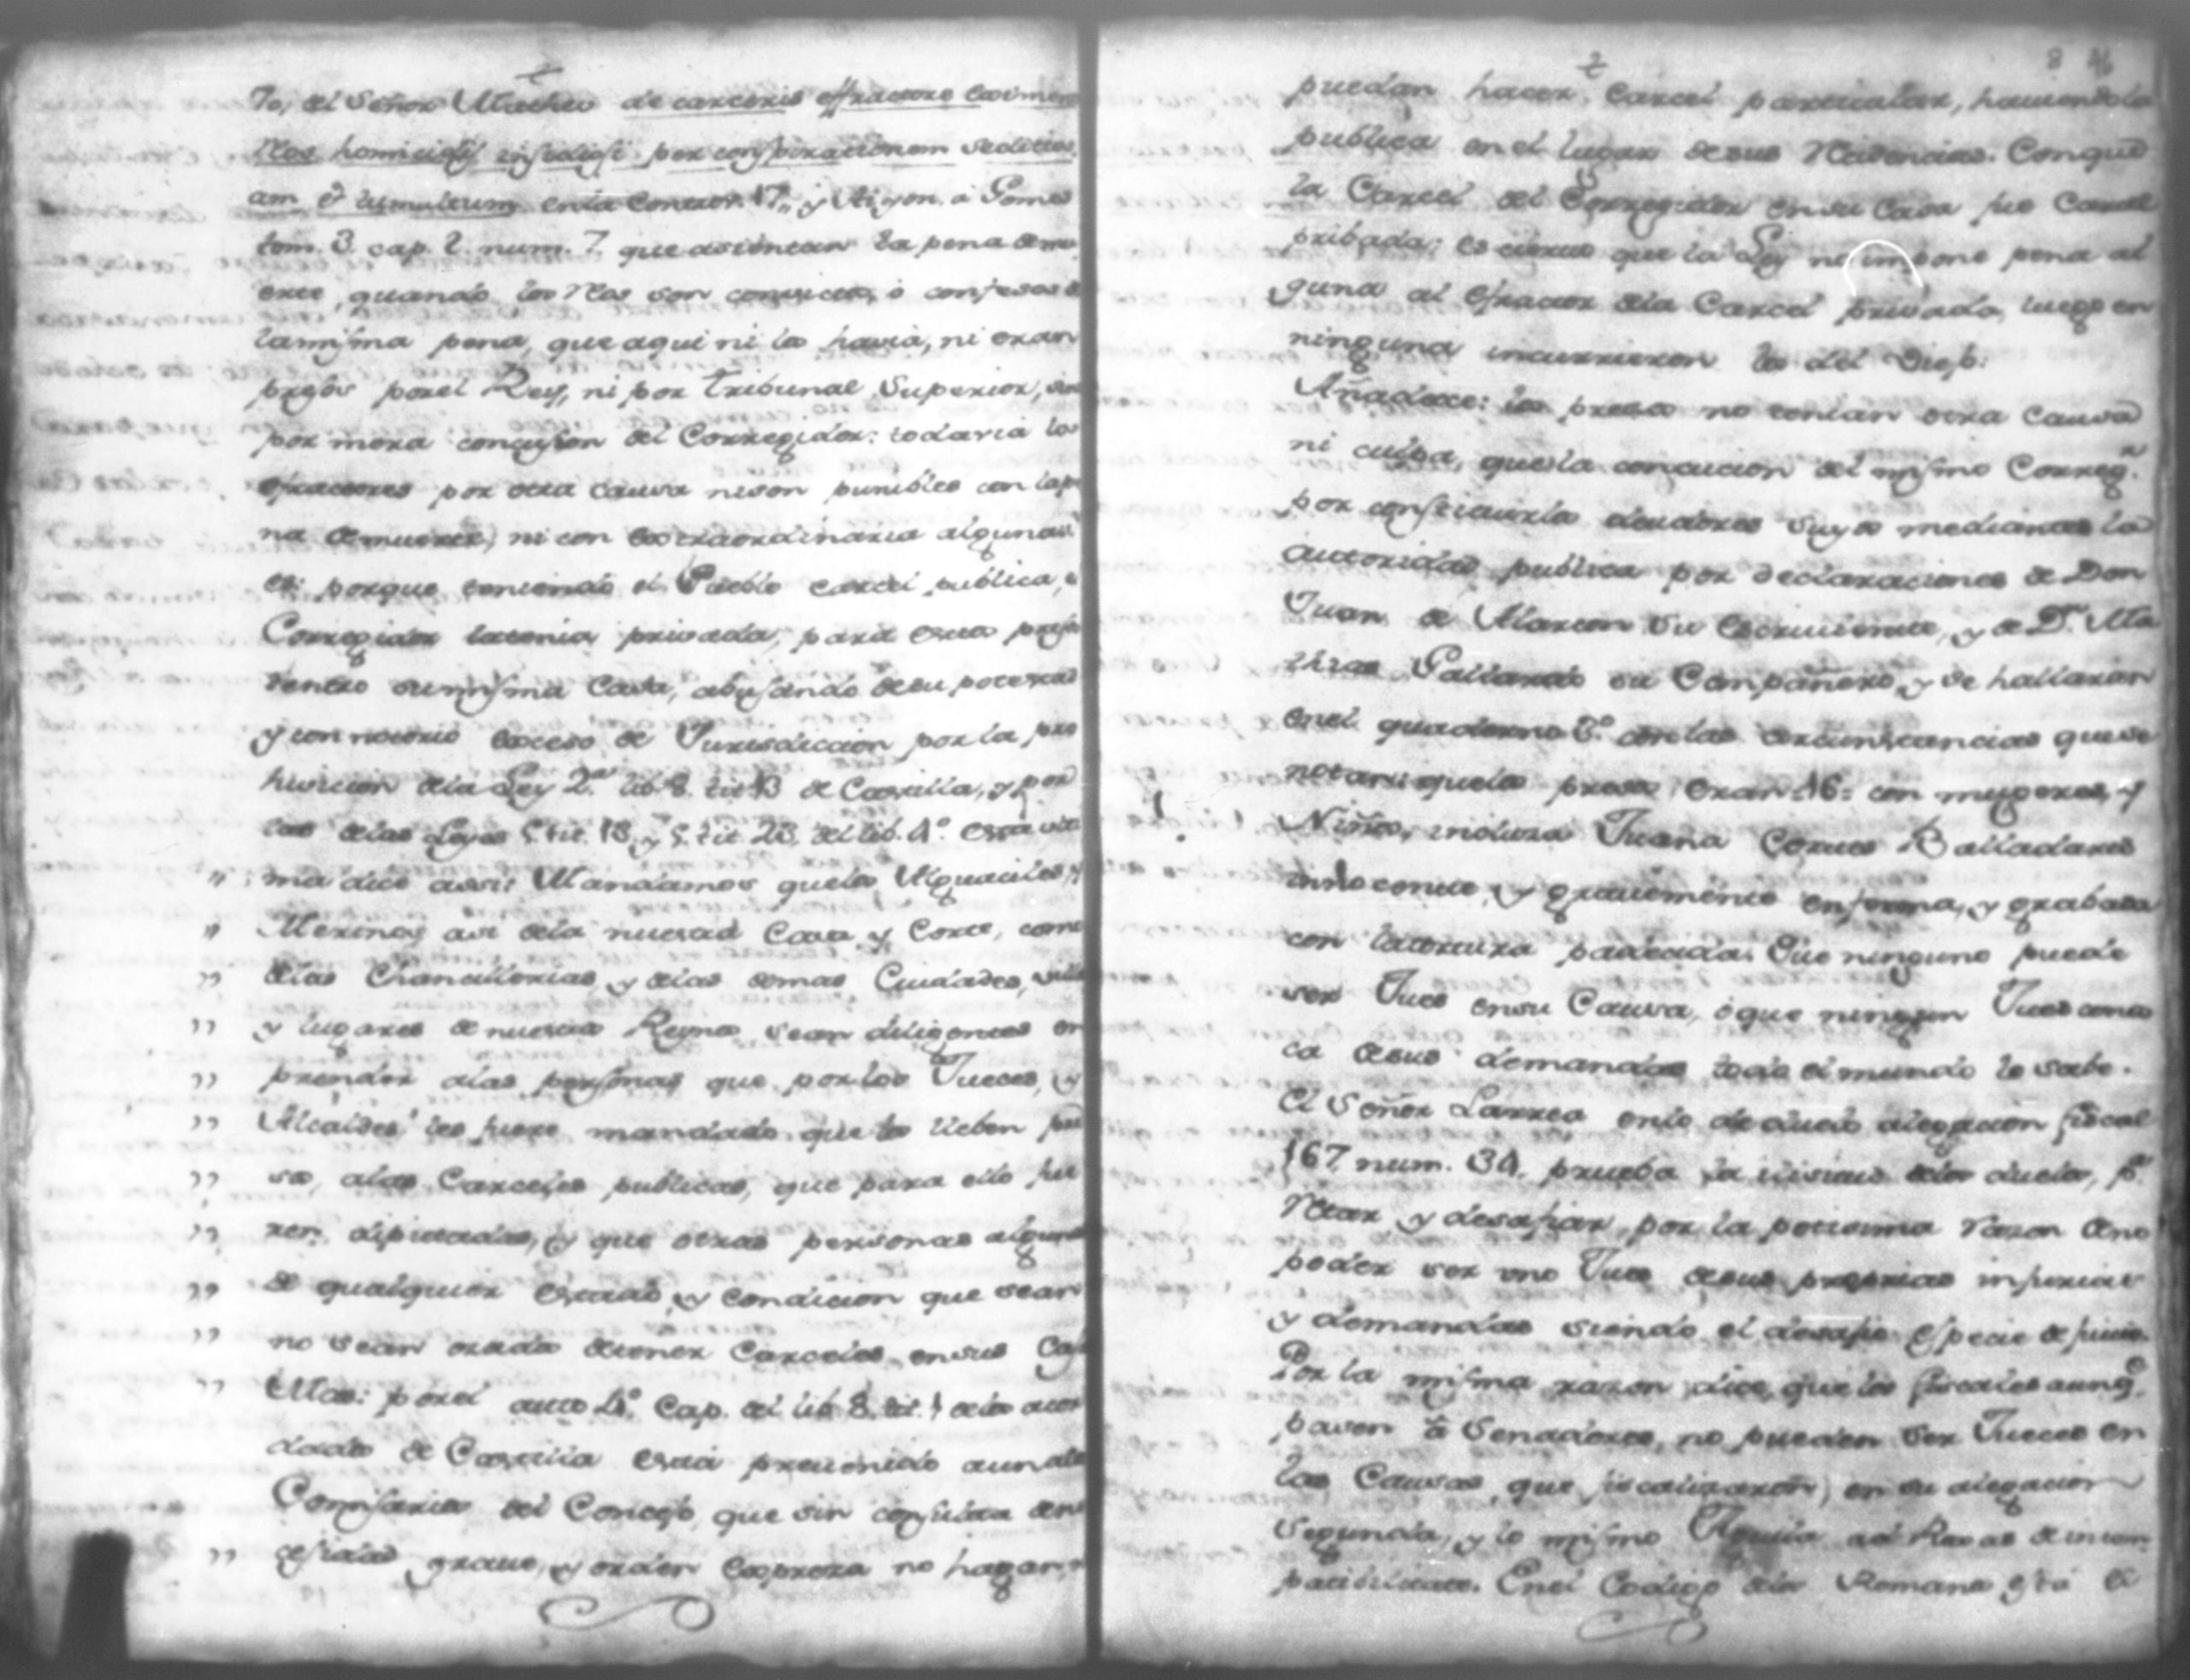 To, el Señor Matheu de carceris effractore
Reos homicidij insidiosi per conspirationem seditios
am & tumultum en la Contror. 17,, y Aiyon. à Gomes
tom. 3. cap. 2. num. 7. que asientan la pena de mu
erte, quando los Reos son convictos, ò confesos de
la misma pena, que aqui ni la havia, ni eran
presos por el Rey, ni por Tribunal Superior, sino
por mera concusion del Corregidor: todavia los
efractores por otra causa ni son punibles con la pe
na de muerte, ni con extraordinaria alguna
es: porque teniendo el Pueblo carcel publica, el
Corregidor la tenia privada, para estos presos
dentro su misma Casa, abusando de su potestad
y con notorio exceso de Jurisdiccion por la pro
hivicion de la Ley 2.ª lib. 8. tit. 13 de Castilla, y por
las de las Leyes 5. tit. 13. y 5. tit. 23. del lib. 4.º esta ulti
,, ma dice assi: Mandamos que los Alguaciles, y
,, Merinos asi de la nuestra Casa y Corte, como
,, de las Chancillerias, y de las demas Ciudades, villas
,, y lugares de nuestros Reynos sean diligentes en
,, prender a las personas que por los Jueces, y
,, Alcaldes les fuere mandado que los lleben pre
,, sos, a las Carceles publicas, que para ello fue
,, ren diputadas, y que otras personas algunas
,, de qualquier estado, y condicion que sean
,, no sean osados de tener Carceles en sus Casas
,, Mas: por el auto 4.º Cap. del lib. 8. tit. 1 de los acor
dados de Castilla està prevenido aun a los
Comisarios del Concejo, que sin consulta de ne
,, cesidad grave, y orden expresa no hagan, n
puedan hacer Carcel particular, haviendola
publica en el lugar de sus Residencias. Con que
la Carcel del Corregidor en su Casa fue Carcel
pribada; es cierto que la Ley no impone pena al
guna al efractor de la Carcel privada, luego en
ninguna incurrieron los del Disp.
Añadese: los presos no tenian otra causa
ni culpa, que la concucion del mismo Correg.r
por constituirlos deudores suyos mediante la
autoridad publica por declaraciones de Don
Juan de Alarcon su escriviente, y de D.n Ma
thias Gallardo su Compañero, y se hallaran
en el quaderno 3.º con las circunstancias que se
notaru que los presos eran 16: con mugeres, y
Niños, inclusa Juana Cortes Balladares
innocente, y gravemente enferma, y grabada
con la tortura padecida. Que ninguno puede
ser Jues en su Causa, ò que ningun Jues conos
ca de sus demandas todo el mundo lo sabe.
El Señor Larrea en lo de duelo alegacion fiscal
167 num. 34. prueba la ilisitud de los duelos, p.r
Retar y desafiar, por la potisima razon de no
poder ser uno Jues de sus proprias injurias
y demandas siendo el desafio especie de juicio.
Por la misma razon dice, que los fiscales aunq.e
pasen à Senadores, no pueden ser Jueces en
las Causas, que fiscalizaron, en su alegacion
segunda, y lo mismo Aguila ad Roxas de incom
patibilitate. En el Codigo de la Romana està el